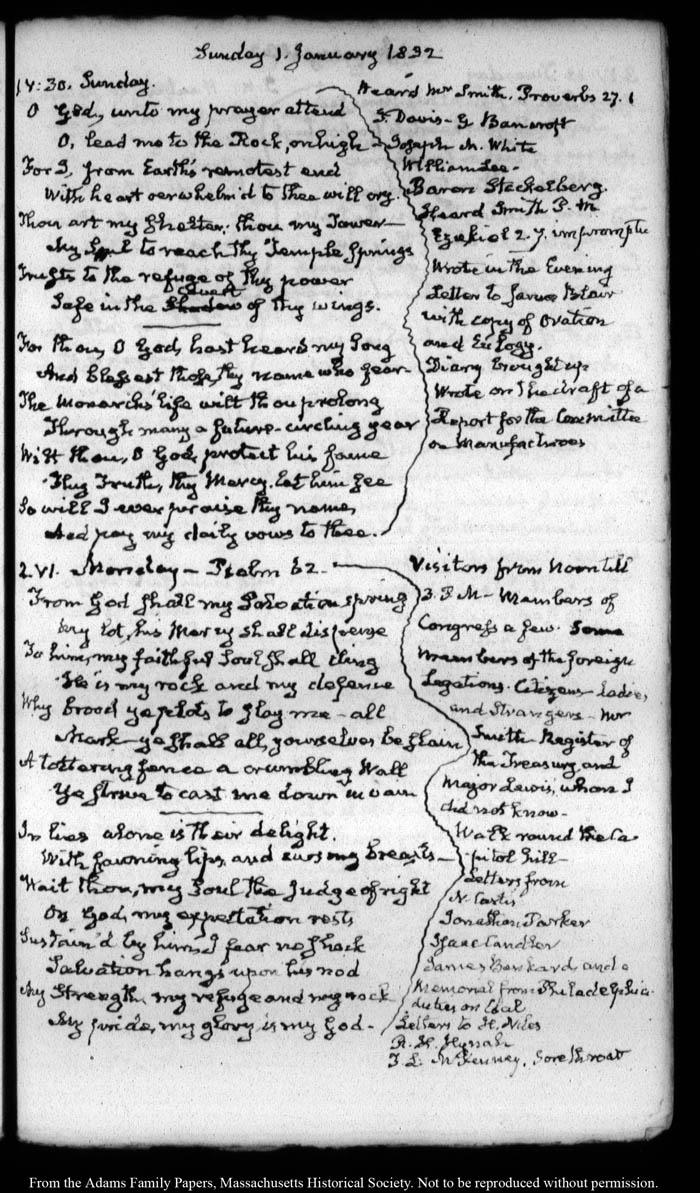 Sunday 1. January 1832
IV:30. Sunday.
O God, unto my prayer attend
O, lead me to the Rock, on high
For I, from Earth's remotest end
With heart oerwhelm'd to thee will cry.
Thou art my Shelter; thou my Tower—
My Soul to reach thy Temple Springs
Trusts to the refuge of thy power
covert
Safe in the Shadow of thy wings.
For thou, O God, hast heard my Song
And blessest those thy name who fear
The Monarch's life wilt thou prolong
Through many a future-circling year
Wilt thou, O God, protect his fame
Thy Truth, thy Mercy, let him see
So will I ever praise thy name,
And pay my daily vows to thee.
Heard Mr Smith. Proverbs 27. 1
J. Davis - G Bancroft
Joseph M. White
William Lee-
Baron Stackelberg.
Heard Smith P.M
Ezekiel 2.7. impromptu
Wrote in the Evening
Letter to James Blair
with copy of Oration
and Eulogy.
Diary brought up
Wrote on the draft of a
Report for the Committee
on Manufactures
2. VI. Monday — Psalm 62.
From God shall my Salvation spring
My lot, his Mercy shall dispense
To him, my faithful Soul shall cling
He is my rock and my defence
Why brood ye plots to slay me - all
Mark - ye shall all, yourselves be slain
A tottering fence a crumbling Wall
Ye strive to cast me down in vain
In lies alone is their delight.
With fawning lips, and cursing breasts—
Wait thou, my Soul the Judge of right
On God, my expectation rests
Sustain'd by him, I fear no shock
Salvation hangs upon his nod
My Strength, my refuge and my rock
My pride, my glory is my God-
Visitors from Noon till
3. P.M- Members of
Congress a few. Some
Members of the foreign
Legations. Citizens Ladies,
and Strangers - Mr
Smith Register of
the Treasury, and
Major Lewis, whom I
did not know-
Walk round the Ca-
pitol hill-
Letters from
N. Curtis
Jonathan Parker
Isaac Candler
James and a
Memorial from Philadelphia.
duties on Coal
Letters to H. Niles
R. H.
T. L. McKenney, Sore throat
From the Adams Family Papers, Massachusetts Historical Society. Not to be reproduced without permission.